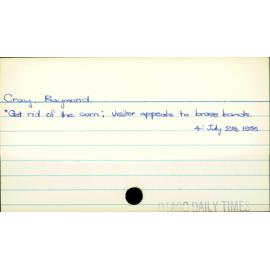 Cray, Raymond
"Get rid of the corn"; Visitor appeals to brass bands.
4: July 28, 1956
OTAGO DAILY TIMES